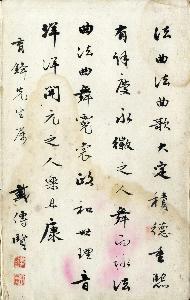 法曲法曲歌大定積德重熙
有餘慶永徽之人舞而詠法
曲法曲舞霓裳政和世理音
洋洋開元之人樂且康
先生屬
戴傳賢